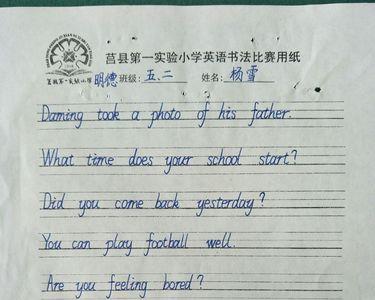 莒县第一实验小学英语书法比赛用纸
明德 班级: 五、二 姓名: 杨雪
Daming took a photo of his father.
What time does your school start?
Did you come back yesterday?
You can play football well.
Are you feeling bored?